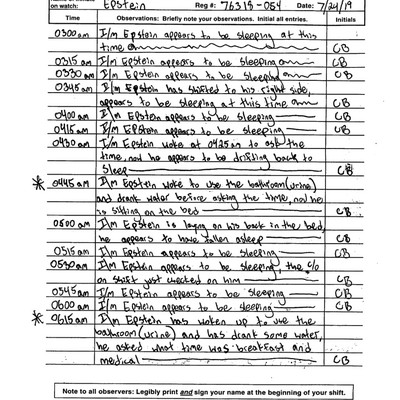 on watch: Epstein Reg # 76318-054 Date: 7/24/19
Time Observations: Briefly note your observations. Initial all entries. Initials
0300am I/m Epstein appears to be sleeping at this
time CB
0315am I/m Epstein appears to be sleeping CB
0330am I/m Epstein appears to be sleeping CB
0345am I/m Epstein has shifted to his right side,
appears to be sleeping at this time CB
0400am I/m Epstein appears to be sleeping CB
0415am I/m Epstein appears to be sleeping CB
0430am I/m Epstein woke at 0425am to ask the
time, now he appears to be drifting back to
sleep CB
* 0445am I/m Epstein woke to use the bathroom (urine)
and drank water before asking the time, now he
is sitting on the bed CB
0500am I/m Epstein is laying on his back in the bed,
he appears to have fallen asleep CB
0515am I/m Epstein appears to be sleeping CB
0530am I/m Epstein appears to be sleeping, the c/o
on shift just checked on him CB
0545am I/m Epstein appears to be sleeping CB
0600am I/m Epstein appears to be sleeping CB
* 0615am I/m Epstein has woken up to use the
bathroom (urine) and has drank some water,
he asked what time was breakfast and
medical CB
Note to all observers: Legibly print and sign your name at the beginning of your shift.